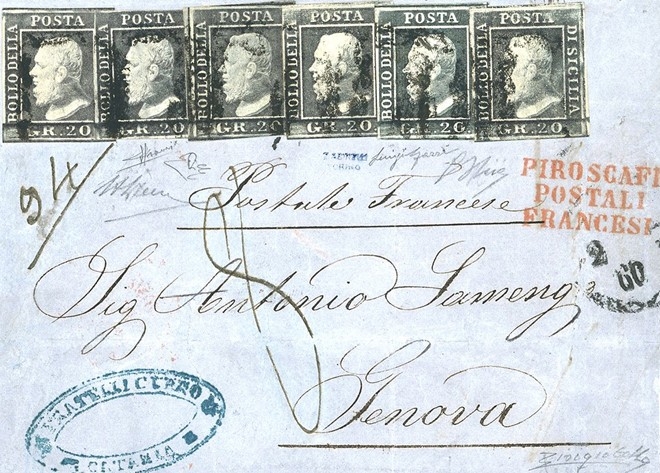 POSTA POSTA POSTA POSTA POSTA POSTA
BOLLO DELLA BOLLO DELLA BOLLO DELLA BOLLO DELLA BOLLO DELLA BOLLO DELLA DI SICILIA
GR.20 GR.20 GR.20 GR.20 GR.20 GR.20
PIROSCAFI
POSTALI
FRANCESI
Postale Francese
2
60
Sig Antonio Sameng
Genova
FRATELLI
CATANIA